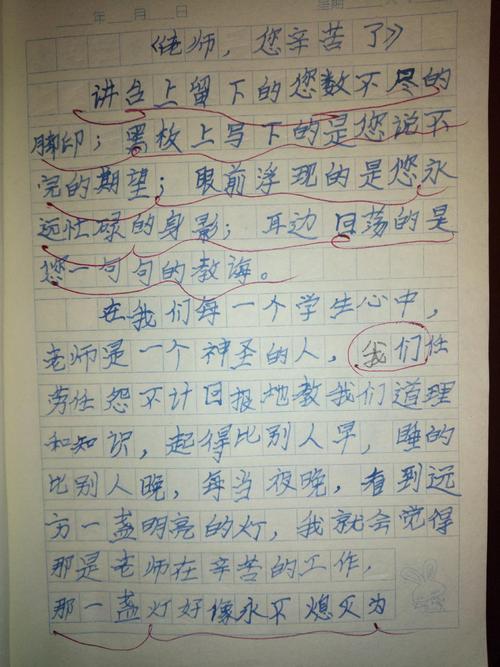 年 月 日 星期
《老师，您辛苦了》
讲台上留下的您数不尽的
脚印；黑板上写下的是您说不
完的期望；眼前浮现的是您永
远忙碌的身影；耳边回荡的是
您一句句的教诲。
在我们每一个学生心中，
老师是一个神圣的人，我们任
劳任怨不计回报地教我们道理
和知识，起得比别人早，睡的
比别人晚，每当夜晚，看到远
方一盏明亮的灯，我就会觉得
那是老师在辛苦的工作，
那一盏灯好像永不熄灭为